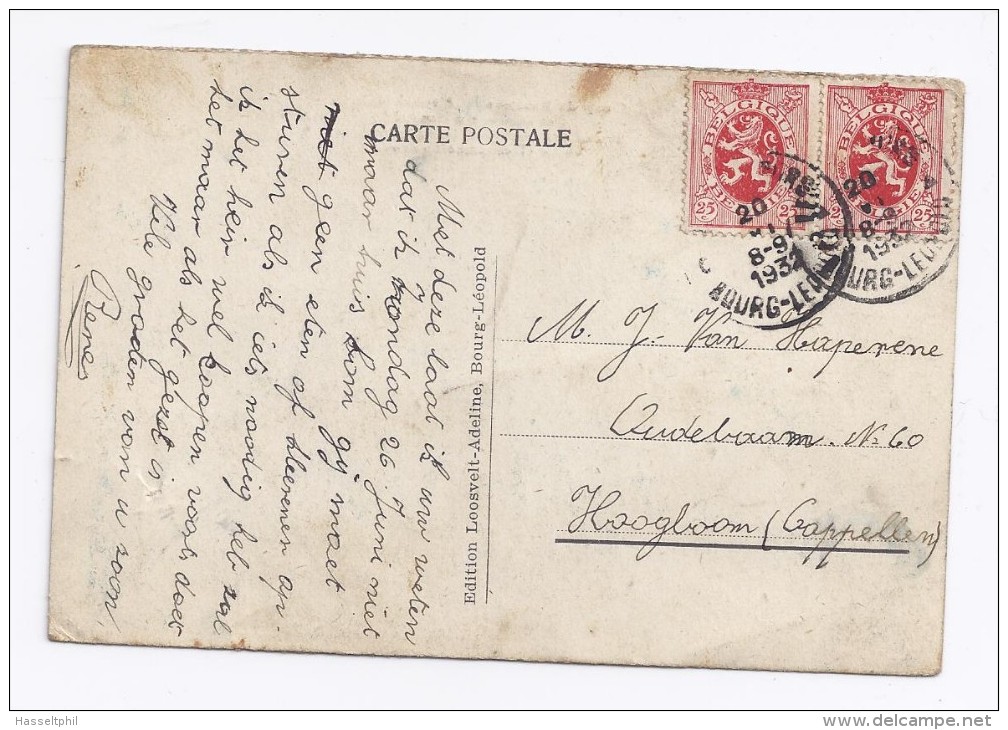 CARTE POSTALE
Met deze laat ik uw weten
dat ik zondag 26 Juni niet
maar huis kom gij moet
niet geen eten of kleerenen op-
sturen als ik iets noodig heb zal
ik het hein wel koopen voorts doet
het maar als het gezet is
Vele groeten van u zoon
Renes
Edition Loosvelt-Adeline, Bourg-Léopold
BELGIQUE
BELGIE
25 25
BELGIQUE
BELGIE
25
20
8-9
1932
BOURG-LEO
20
8-9
193
OURG-LEOPO
M. J. Van Haperene
Oudebaam. N. 60
Hoogboom (Cappellen)
Hasseltphil
www.delcampe.net